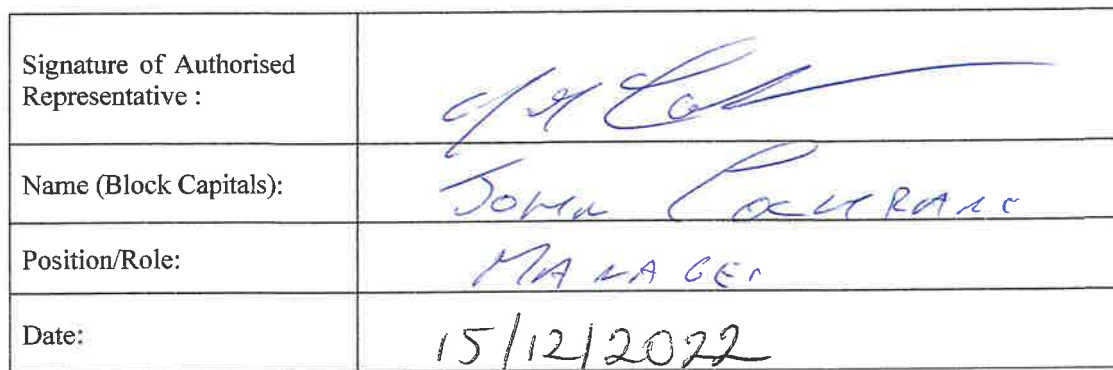 Signature of Authorised
Representative :
Name (Block Capitals): JOHN COCHRANE
Position/Role: MANAGER
Date: 15/12/2022